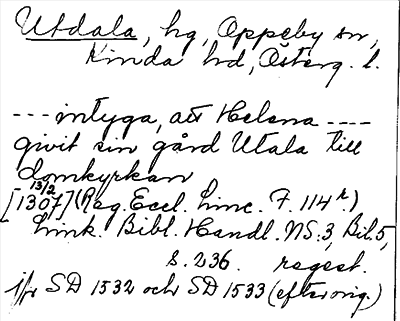 Utdala, hg, Oppeby sn,
Kinda hd, Österg. l.
--- intyga, att Helena ----
givit sin gård Utala till
domkyrkan
13/2
[1307] (Reg. Eccl. Linc. F. 114 r.)
Link. Bibl. Handl. NS. 3, Bil. 5,
s. 236. regest.
jfr SD 1532 och SD 1533 (efter orig.)